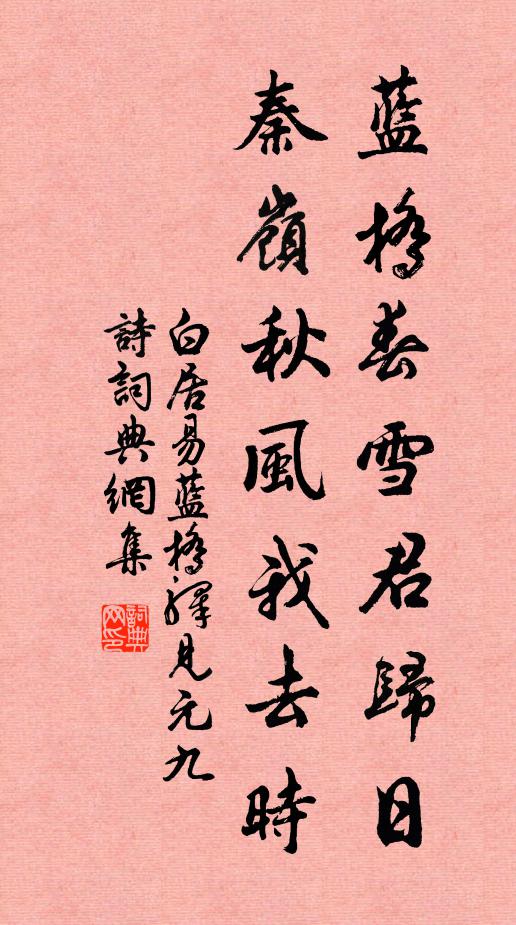 藍橋春雪君歸日
秦嶺秋風我去時
白居易藍橋驛見元九
詩詞典網集
詞典網印